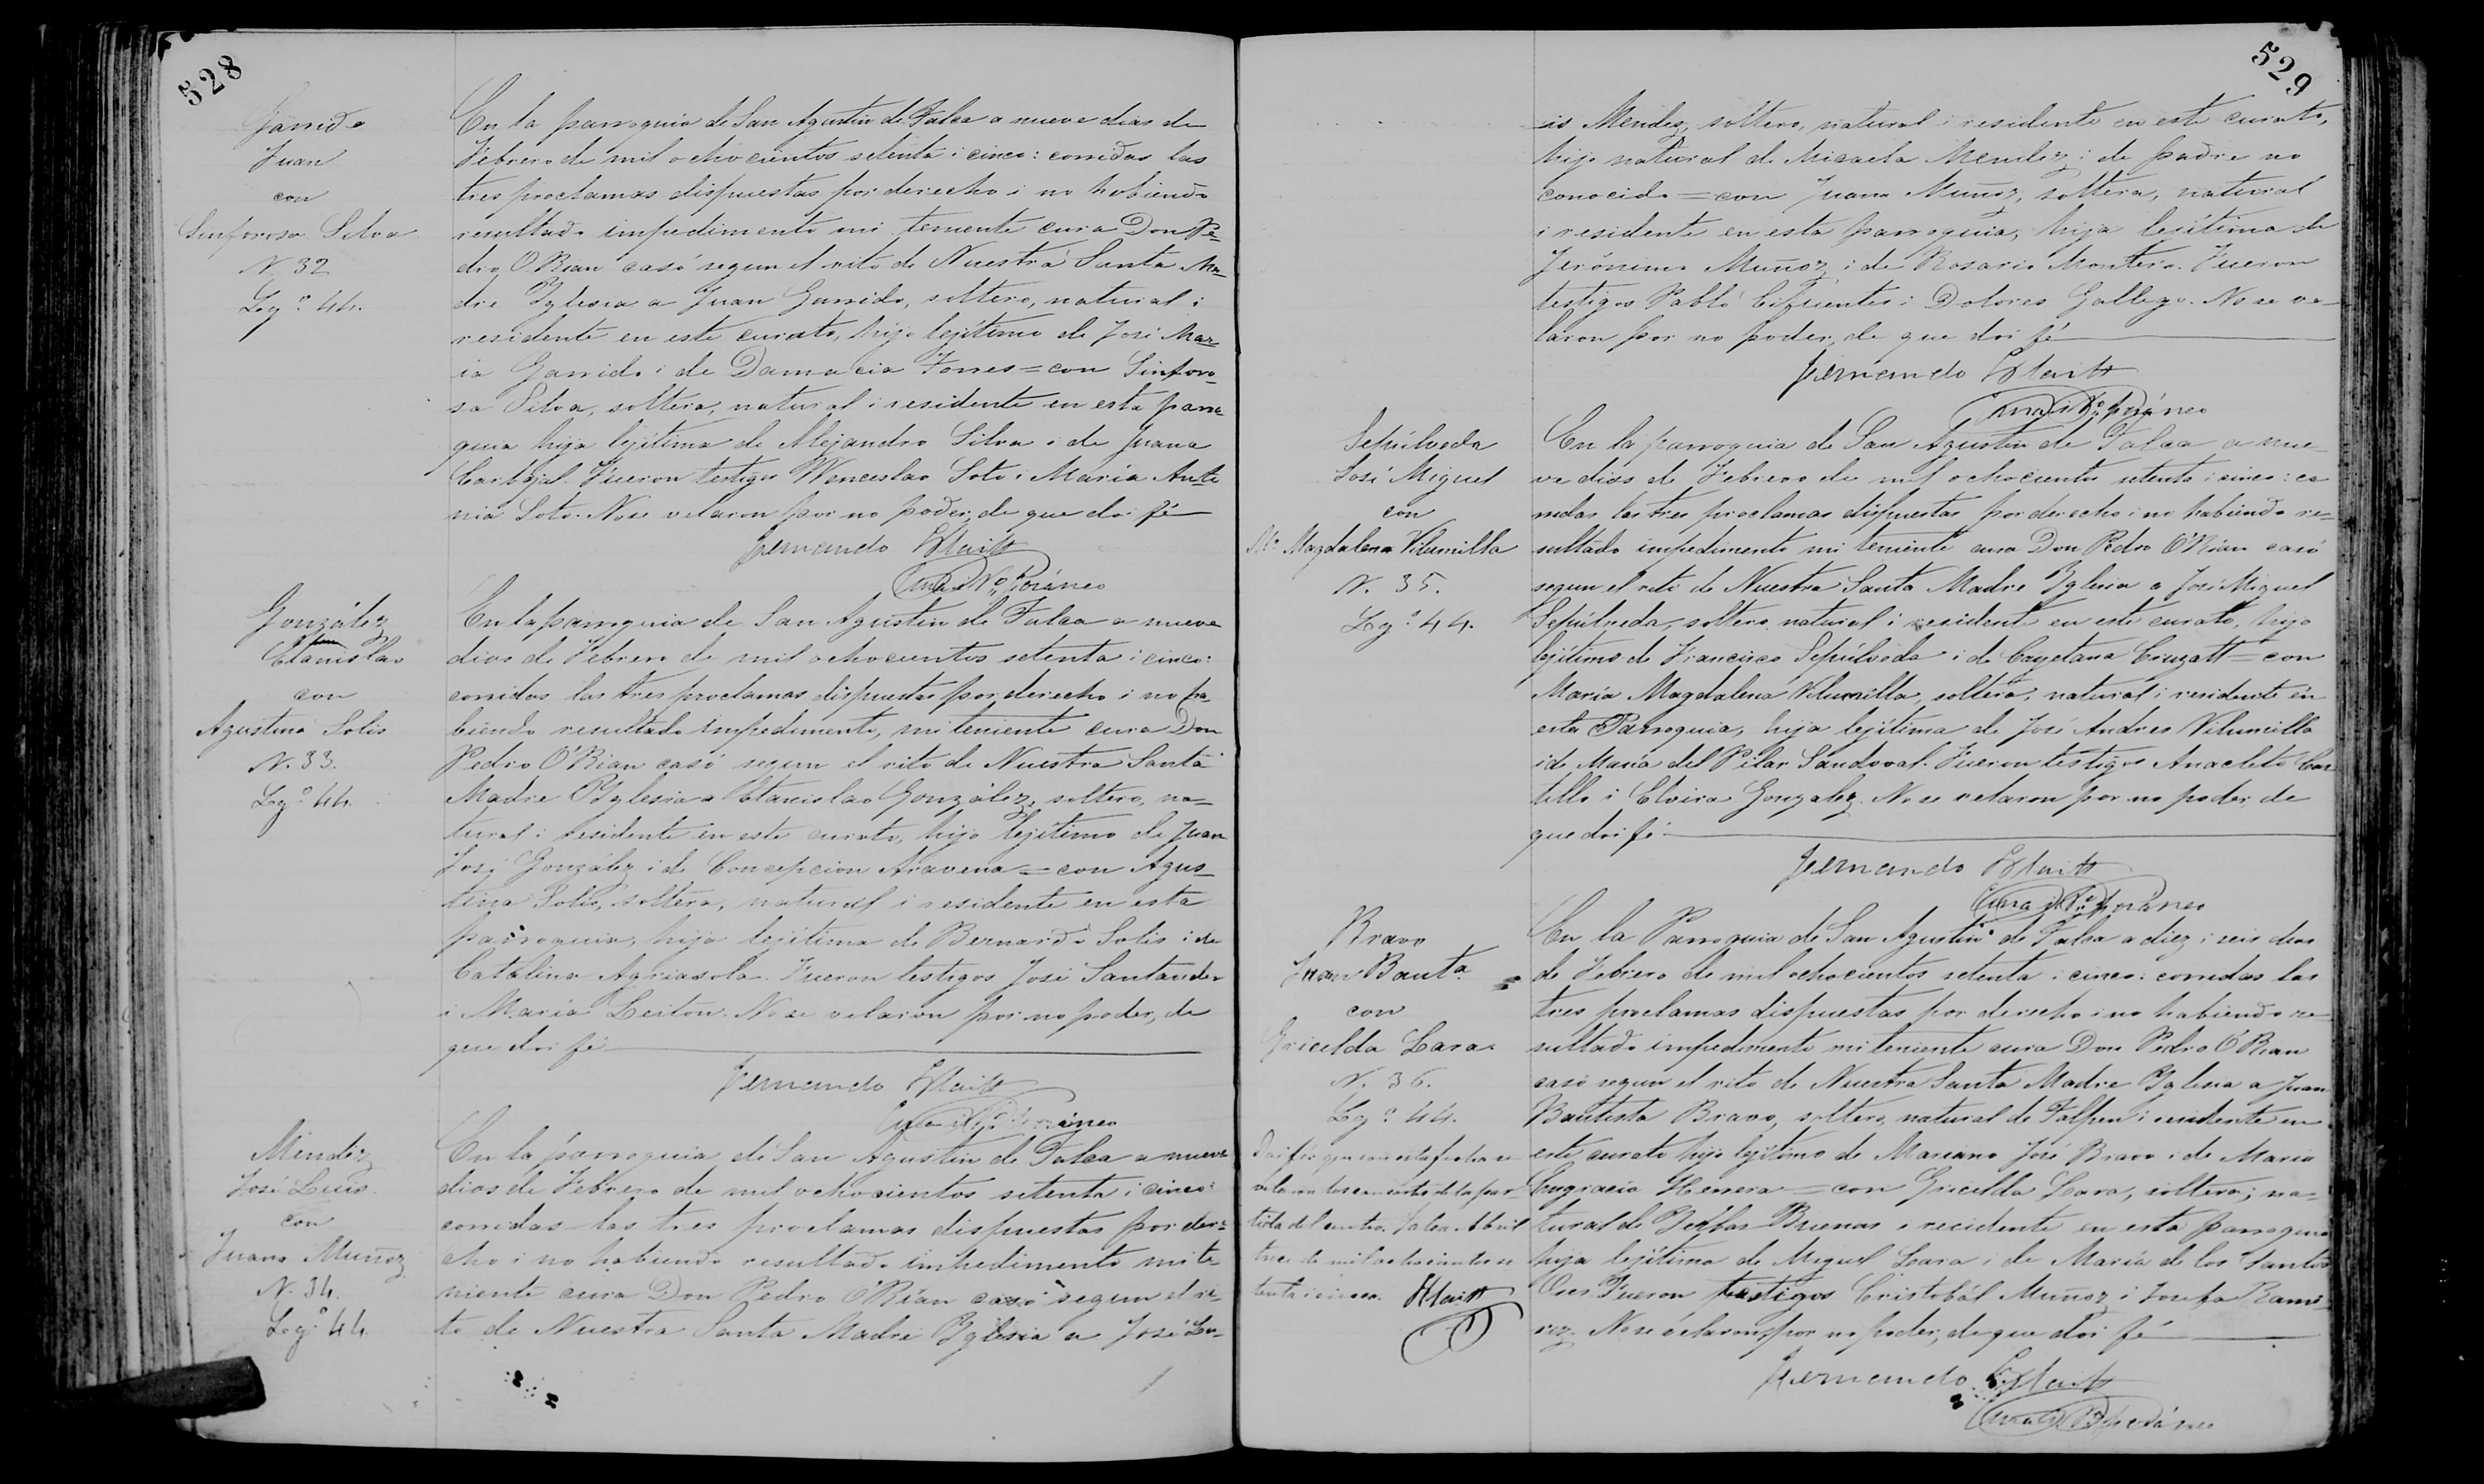 528
Garrido
Juan
con
Sinforosa Silva
N. 32
Leg.º 44.
En la parroquia de San Agustin de Talca a nueve dias de
Febrero de mil ochocientos setenta i cinco: corridas las
tres proclamas dispuestas por derecho i no habiendo
resultado impedimento mi teniente cura Don Pe-
dro O'Rian casó segun el rito de Nuestra Santa Ma-
dre Yglesia a Juan Garrido, soltero, natural i
residente en este curato, hijo lejítimo de José Mar-
ia Garrido i de Damacia Torres = con Sinforo-
sa Silva, soltera, natural i residente en esta parro-
quia hija lejítima de Alejandro Silva i de Juana
Carbajal. Fueron testigos Wenceslao Soto i María Anto
nia Soto. No se velaron por no poder, de que doi fé
Fernando Blaitt
Cura i Vº Foráneo
González
Etanislao
con
Agustina Solis
N. 33.
Leg.º 44.
En la parroquia de San Agustin de Talca a nueve
dias de Febrero de mil ochocientos setenta i cinco:
corridas las tres proclamas dispuestas por derecho i no ha-
biendo resultado impedimento, mi teniente cura Don
Pedro O'Rian casó segun el rito de Nuestra Santa
Madre Yglesia a Etanislao González, soltero, na-
tural i residente en este curato, hijo lejítimo de Juan
José González i de Concepcion Aravena = con Agus-
tina Solis, soltera, natural i residente en esta
parroquia, hija lejítima de Bernardo Solis i de
Catalina Agriasola. Fueron testigos José Santander
i María Leiton. No se velaron por no poder, de
que doi fé
Fernando Blaitt
Cura i Vº Foráneo
Méndez
José Luis
con
Juana Muñoz
N. 34.
Leg.º 44
En la parroquia de San Agustin de Talca a nueve
dias de Febrero de mil ochocientos setenta i cinco:
corridas las tres proclamas dispuestas por dere-
cho i no habiendo resultado impedimento mi te-
niente cura Don Pedro O'Rian casó segun el ri-
to de Nuestra Santa Madre Yglesia a José Lu-
529
is Mendez, soltero, natural i residente en este curato,
hijo natural de Micaela Mendez i de padre no
conocido = con Juana Muñoz, soltera, natural
i residente en esta parroquia, hija lesítima de
Jerónimo Muñoz i de Rosario Montero. Fueron
testigos Pablo Cifuentes i Dolores Gallego. No se ve-
laron por no poder, de que doi fé
Fernando Blaitt
Cura i Vº Foráneo
Sepúlveda
José Miguel
con
Mª Magdalena Vilumilla
N. 35.
Leg.º 44.
En la parroquia de San Agustin de Talca a nue-
ve dias de Febrero de mil ochocientos setenta i cinco: co
rridas las tres proclamas dispuestas por derecho i no habiendo re-
sultado impedimento mi teniente cura Don Pedro O'Rian casó
segun el rito de Nuestra Santa Madre Yglesia a José Miguel
Sepúlveda, soltero natural i residente en este curato, hijo
lejítimo de Francisco Sepúlveda i de Cayetana Cruzatt = con
María Magdalena Vilumilla, soltera, natural i residente en
esta Parroquia, hija lejítima de José Andres Vilumilla
i de María del Pilar Sandoval. Fueron testigos Anacleto Cas
tillo i Elvira Gonzalez. No se velaron por no poder, de
que doi fé
Fernando Blaitt
Cura i Vº Foráneo
Bravo
Juan Bauta.
con
Gricelda Lara.
N. 36.
Leg.º 44.
Doi fé: que con esta fecha se
velaron los contenidos de la par-
tida del centro. Talca Abril
trece de mil ochocientos se
tenta i cinco. Blaitt
En la Parroquia de San Agustin de Talca a diez i seis dias
de Febrero de mil ochocientos setenta i cinco: corridas las
tres proclamas dispuestas por derecho i no habiendo re-
sultado impedimento mi teniente cura Don Pedro O'Rian
casó segun el rito de Nuestra Santa Madre Yglesia a Juan
Bautista Bravo, soltero, natural de Talpen i residente en
este curato hijo lejítimo de Mariano José Bravo i de Maria
Engracia Herrera = con Gricelda Lara, soltera, na-
tural de Yerbas Buenas i recidente en esta parroquia
hija lejítima de Miguel Lara i de María de los Santos
Fueron testigos Cristobál Muñoz i Josefa Rami-
rez. No se velaron por no poder, de que doi fé
Fernando Blaitt
Cura i Vº Foráneo